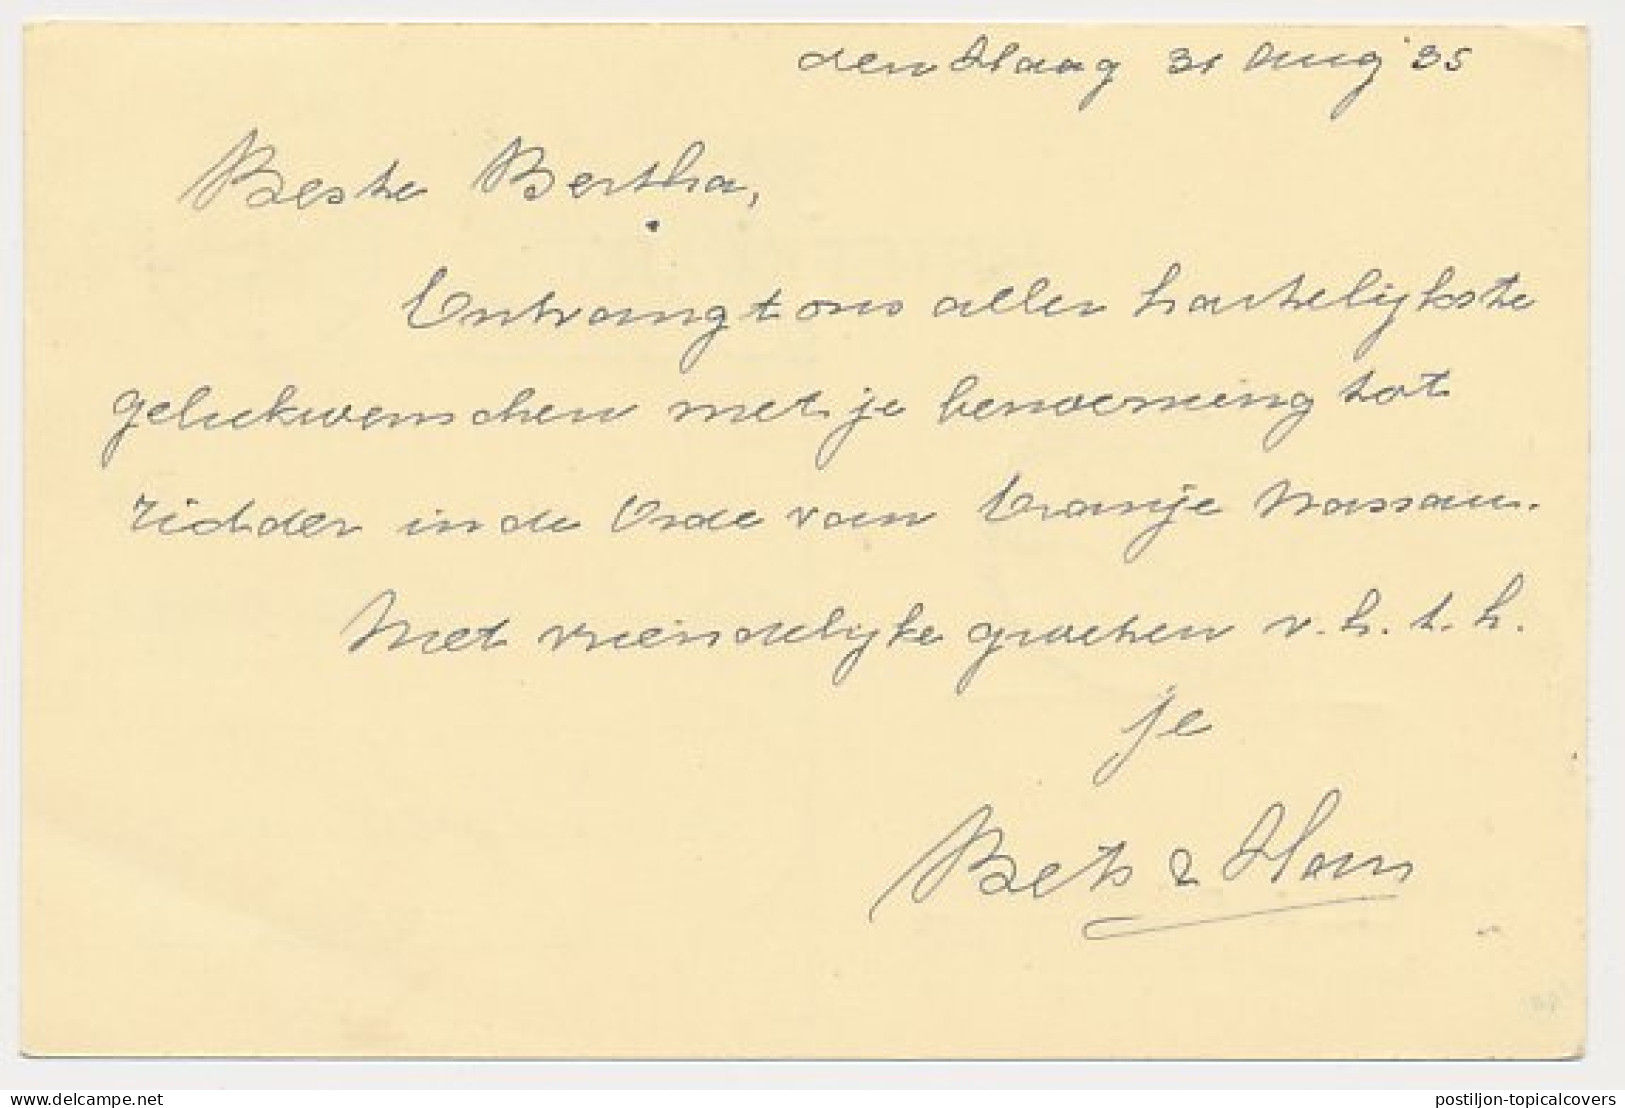 den Haag 31 Aug '35
Beste Bertha,
Ontvangt ons aller hartelijkste
gelukwenschen met je benoeming tot
ridder in de Orde van Oranje Nassau.
Met vriendelijke groeten v. h. t. h.
je
Bets & Hans
www.delcampe.net
postiljon-topicalcovers